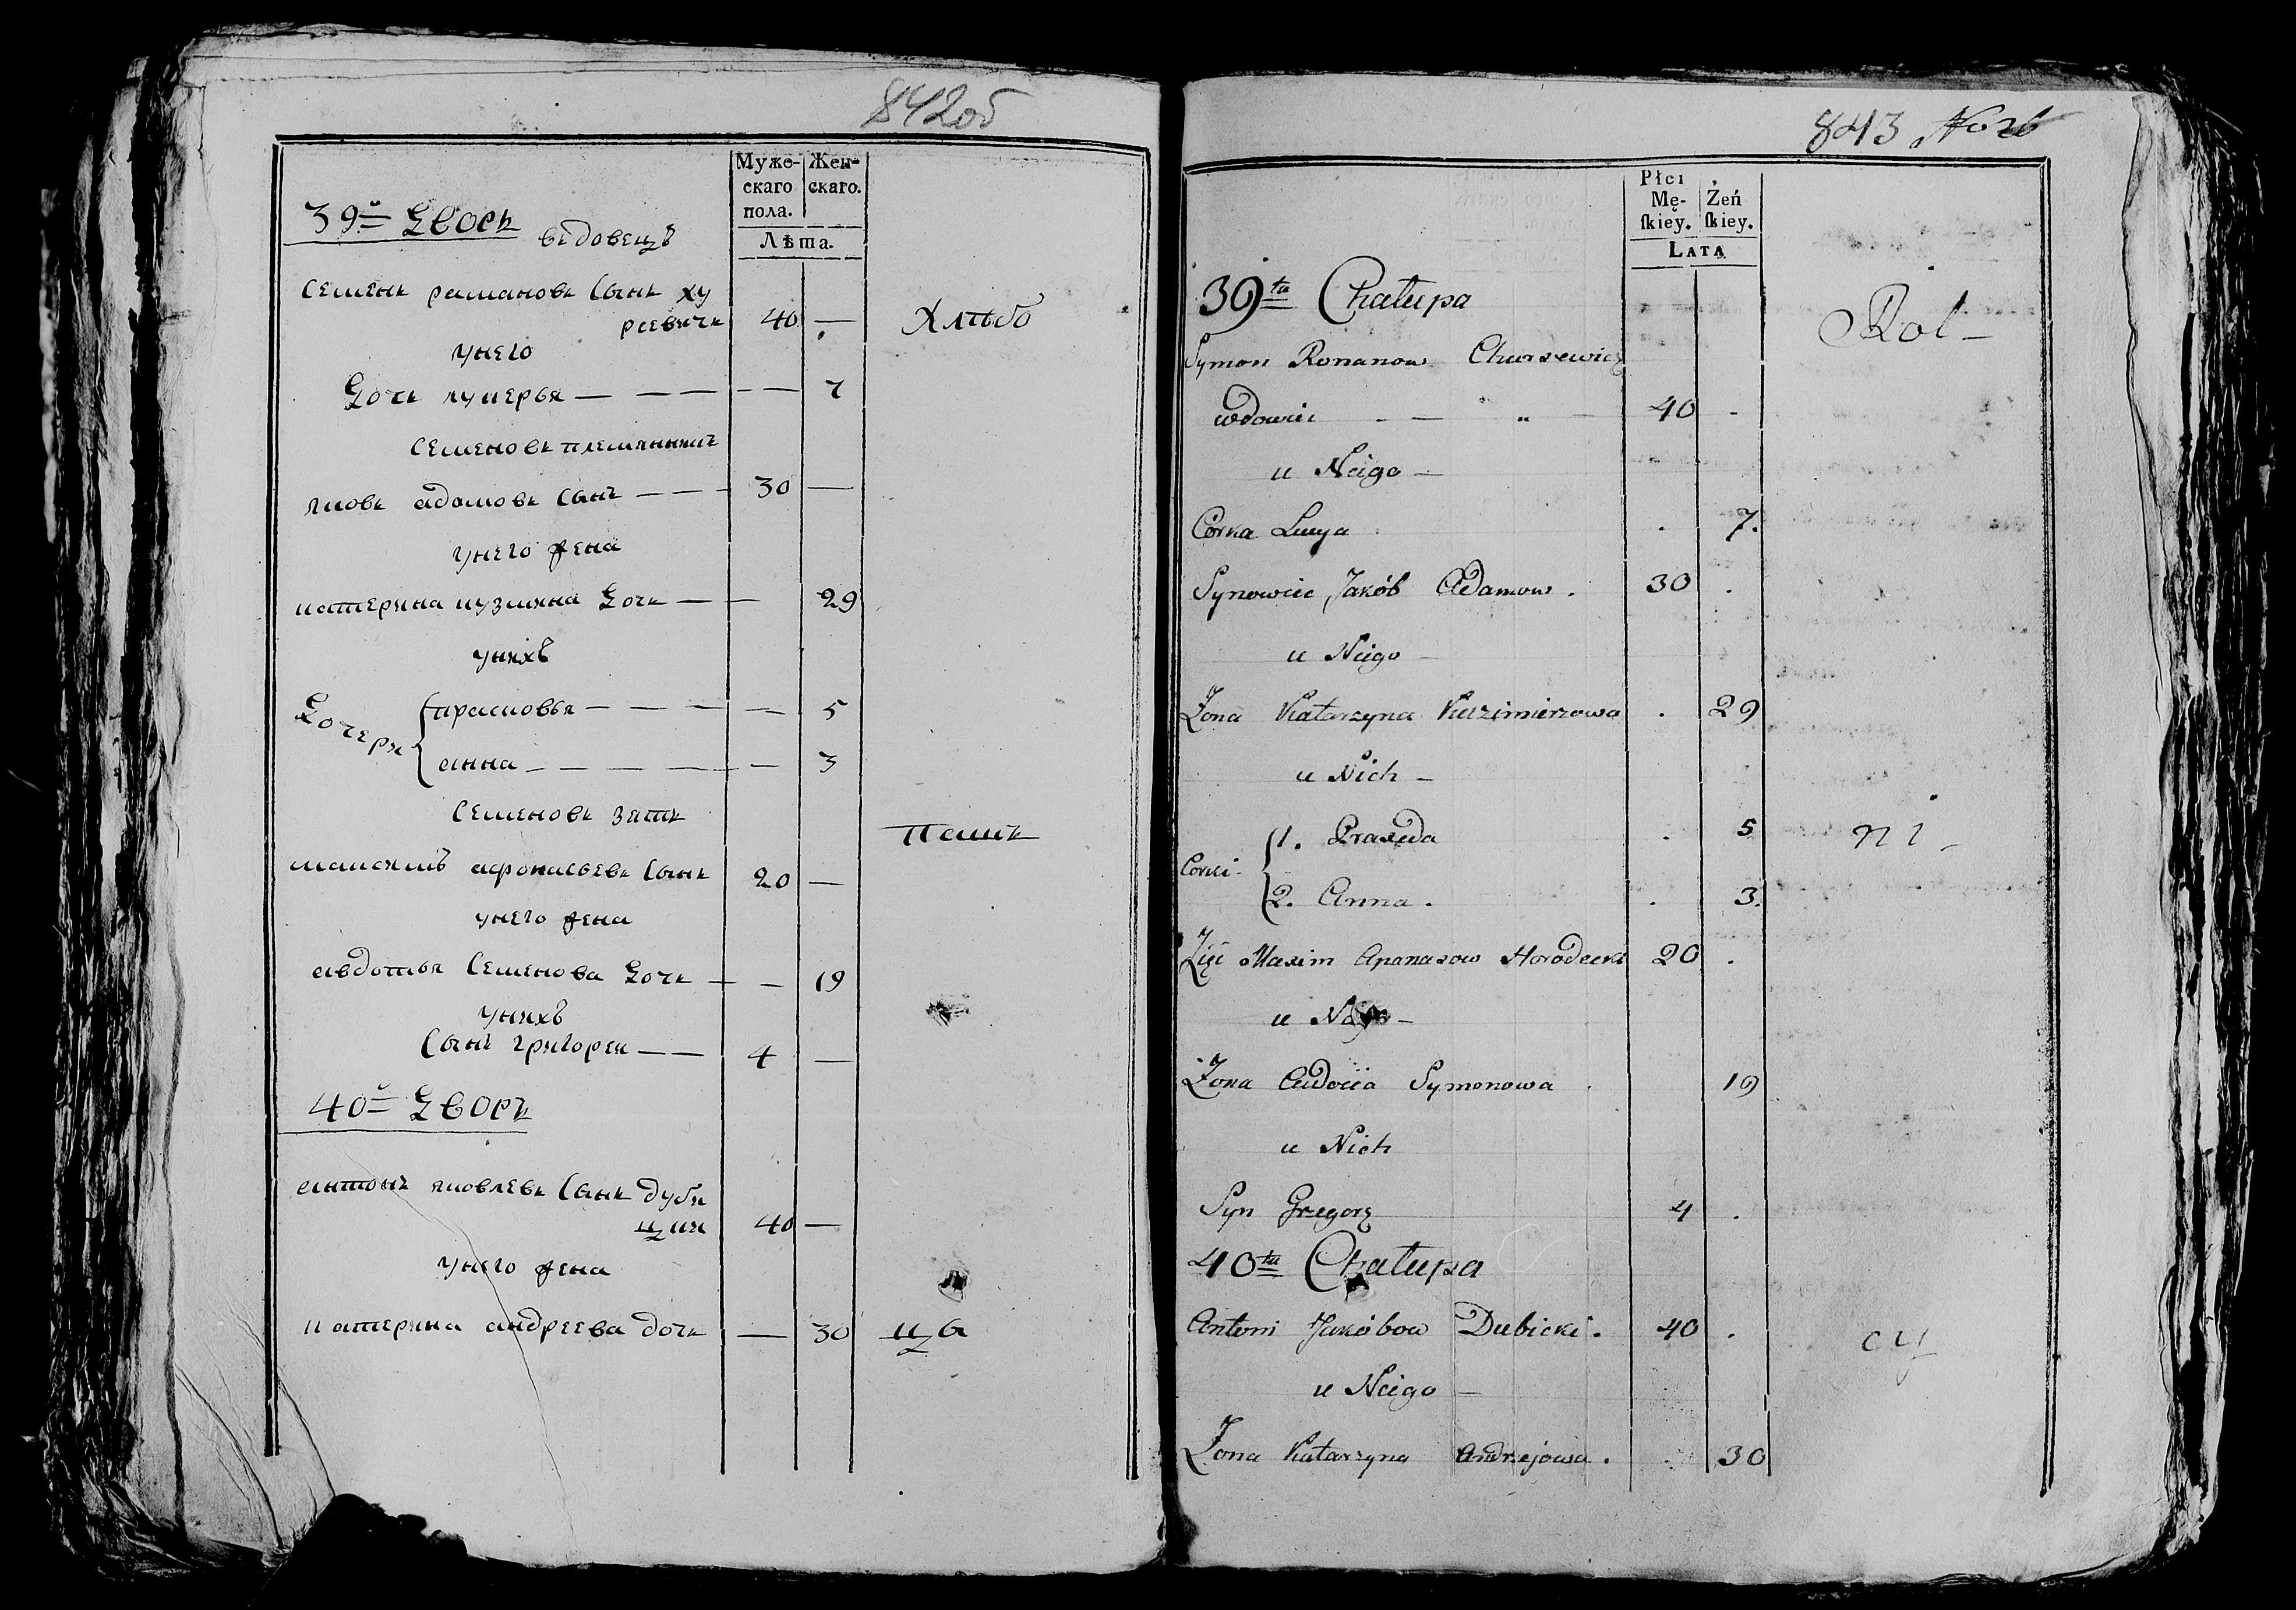 842об
Муже-
скаго
пола.
Жен-
скаго.
Лѣта.
39й Дворъ вдовецъ
Семенъ рамановъ Сынъ ху
рсевичъ 40 —
Хлѣбо
унего
Дочь лукерья — — — — — 7
Семеновъ племянникъ
яковъ адамовъ Сынъ — — — 30 —
унего жена
катерина кузмина Дочь — — 29
унихъ
Дочери
прасковья — — — — — 5
анна — — — — — 3
Семеновъ зять
Пашъ
максимъ афонасьевъ Сынъ 20 —
унего жена
авдотья Семенова Дочь — — 19
унихъ
Сынъ григорей — — 4 —
40й Дворъ
антонъ яковлевъ Сынъ дуби
цки 40 —
унего жена
катерина андреева дочь — 30
ца
843
Płci
Mę-
ſkiey.
Żeń
ſkiey.
LATA
39ta Chałupa
Rol -
Symon Romanow Chursewicz
wdowiec - — „ — 40 -
u Niego —
Corka Lucya . 7.
Synowiec Jakób Adamow . 30 .
u Niego —
Żona Katarzyna Kuzimierzowa . 29
u Nich —
Corki -
1. Praxeda . 5
ni -
2. Anna . . 3.
Zięć Maxim Apanasow Horodecki 20 .
u Niego —
Żona Audocia Symonowa . 19
u Nich
Syn Grzegorz 4 .
40ta Chałupa
Antoni Jakóbow Dubicki . 40 .
cy
u Niego —
Żona Katarzyna Andrzejowa . 30